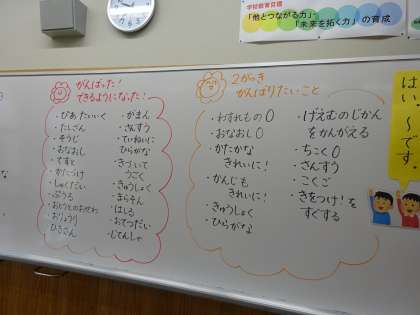 学校教育目標
「他とつながる力」
「未来を拓く力」の育成
がんばった!
できるようになった!
・たしざん
・そうじ
・おなおし
・てすと
・かたづけ
・しゅくだい
・ぷうる
・おりょうり
・ひきざん
・がまん
・さんすう
・ていねいに
ひらがな
・きづいて
うごく
・きゅうしょく
・まらそん
・はしる
・おてつだい
・じてんしゃ
2がっき
がんばりたいこと
・わすれもの0
・おなおし0
・かたかな
きれいに!
・かんじも
きれいに!
・きゅうしょく
・ひらがな
・げえむのじかん
をかんがえる
・ちこく0
・さんすう
・こくご
・きをつけ!を
すぐする
はい、~です。